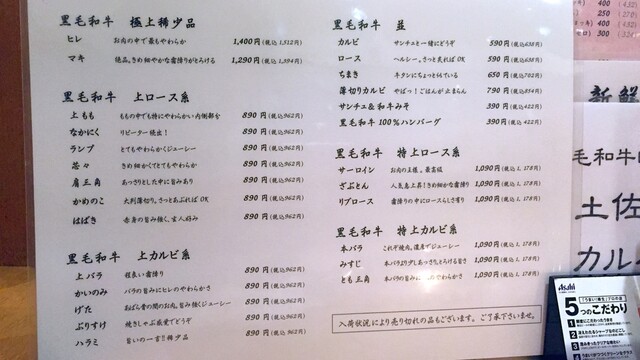 黒毛和牛 極上稀少品
ヒレ お肉の中で最もやわらか 1,400円(税込1,512円)
マキ 絶品。きめ細やかな霜降りがとろける 1,290円(税込1,394円)
黒毛和牛 上ロース系
上もも ももの中でも特にやわらかい内側部分 890円(税込962円)
なかにく リピーター続出! 890円(税込962円)
ランプ とてもやわらかくジューシー 890円(税込962円)
芯々 きめ細かくてとてもやわらか 890円(税込962円)
肩三角 あっさりとした中に旨みあり 890円(税込962円)
かめのこ 大判薄切り。さっとあぶればOK 890円(税込962円)
はばき 赤身の旨み強く、玄人好み 890円(税込962円)
黒毛和牛 上カルビ系
上バラ 程良い霜降り 890円(税込962円)
かいのみ バラの旨みにヒレのやわらかさ 890円(税込962円)
げた あばら骨の間のお肉。旨み強くジューシー 890円(税込962円)
ぶりすけ 焼きしゃぶ感覚でどうぞ 890円(税込962円)
ハラミ 旨いの一言!!稀少品 890円(税込962円)
黒毛和牛 並
カルビ サンチュと一緒にどうぞ 590円(税込638円)
ロース ヘルシー。さっとあぶればOK 590円(税込638円)
ちまき 牛タンにちょっと似ている 650円(税込702円)
薄切りカルビ やばっ!ごはんが止まらん 790円(税込854円)
サンチュ&和牛みそ 390円(税込422円)
黒毛和牛100%ハンバーグ 390円(税込422円)
黒毛和牛 特上ロース系
サーロイン お肉の王様。最高級 1,090円(税込1,178円)
ざぶとん 人気急上昇!きめ細かな霜降り 1,090円(税込1,178円)
リブロース 霜降りの中にロースらしさ有り 1,090円(税込1,178円)
黒毛和牛 特上カルビ系
本バラ これぞ焼肉。濃厚でジューシー 1,090円(税込1,178円)
みすじ 本バラより少しあっさり。とろける旨さ 1,090円(税込1,178円)
とも三角 本バラの旨みに やわらかさ 1,090円(税込1,178円)
入荷状況により売り切れの品もございます。ご了承下さいませ。
新鮮
毛和牛
土佐
カル
Asahi
5つのこだわり
1
2
3
4